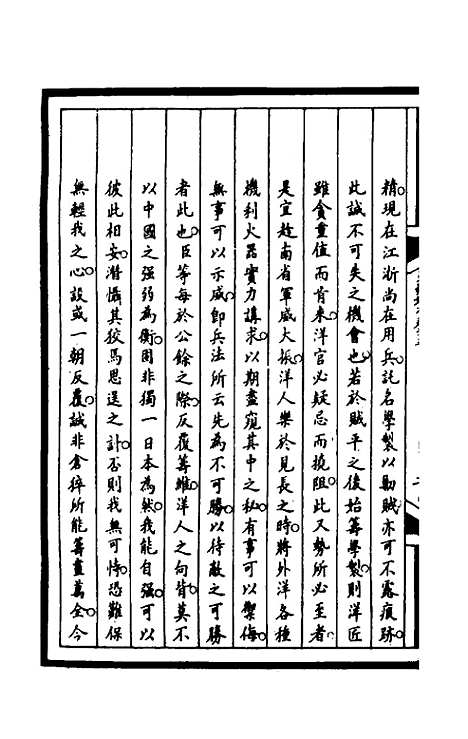 精。現在江浙尚在用兵。託名學製以勦賊亦可不露痕跡。
此誠不可失之機會也。若於賊平之後始籌學製。則洋匠
雖貪重值而肯來。洋官必疑忌而撓阻。此又勢所必至者。
是宜趁南省軍威大振。洋人樂於見長之時。將外洋各種
機利火器實力講求。以期盡窺其中之私。有事可以禦侮。
無事可以示威。卽兵法所云先為不可勝。以待敵之可勝
者此也。臣等每於公餘之際。反覆籌維。洋人之向背。莫不
以中國之强弱為衡。固非獨一日本為然。我能自强。可以
彼此相安。潛懾其狡焉思逞之計。否則我無可恃。恐難保
無輕我之心。設或一朝反覆。誠非倉猝所能籌畫萬全。今